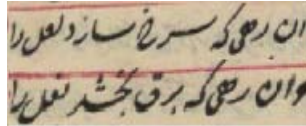 ان رهی که سرخ سازد لعل را
وان رهی که برق بخشد نعل را